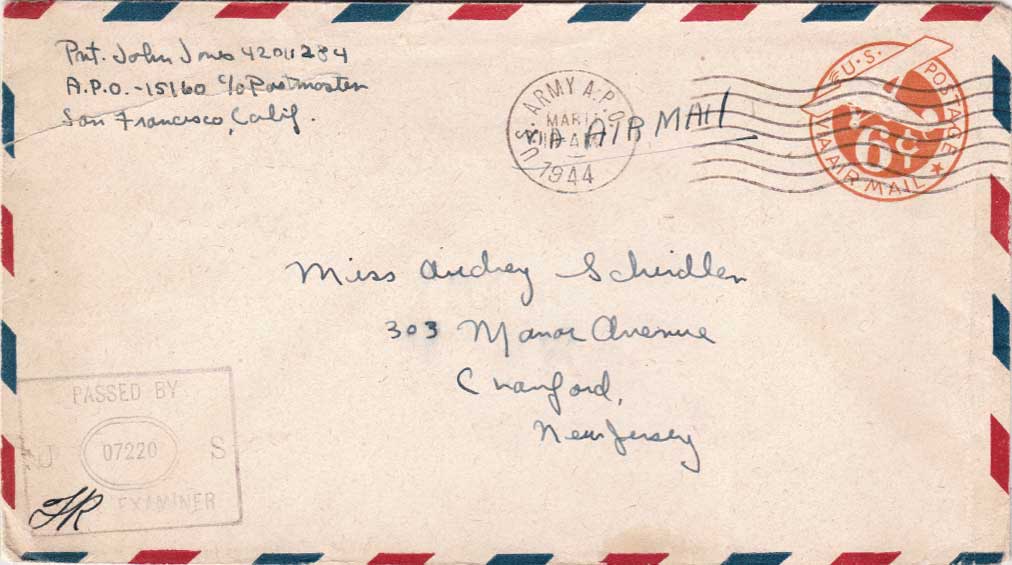 Pvt. John Jones 42011284
A.P.O. - 15160 c/o Postmaster
San Francisco, Calif.
U.S. ARMY A.P.O.
MAR 11
AM
1944
VIA AIR MAIL
U.S. POSTAGE
6¢
VIA AIR MAIL
Miss Audrey Schindler
303 Manor Avenue
Cranford,
New Jersey
PASSED BY
U 07220 S
EXAMINER